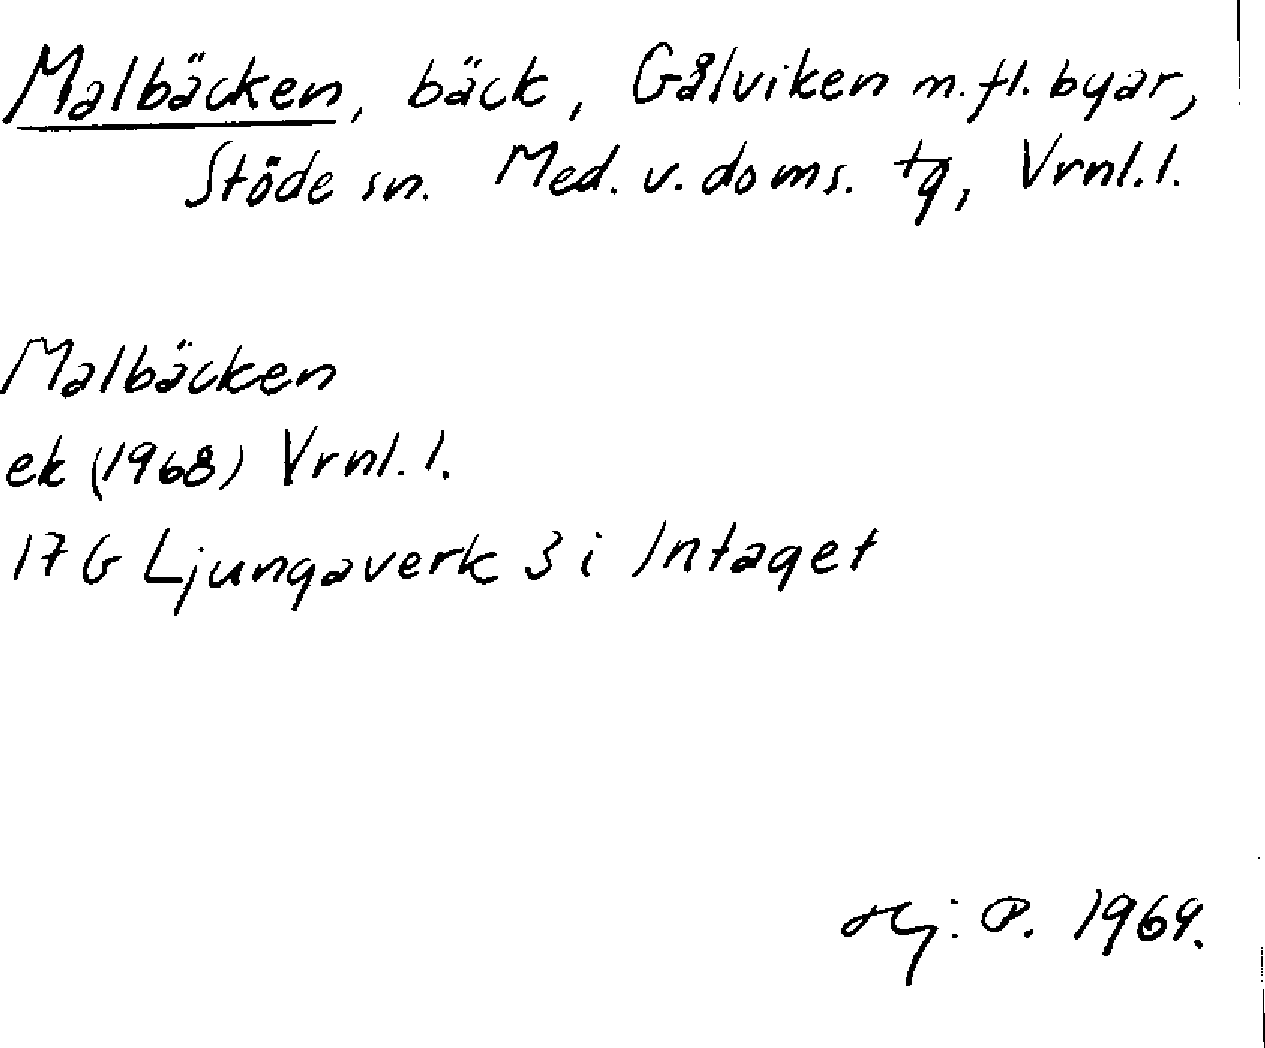 Malbäcken, bäck, Gålviken m.fl. byar,
Stöde sn. Med. v. doms. tg, Vrnl.l.
Malbäcken
ek (1968) Vrnl.l.
17 G Ljungaverk 3 i Intaget
Hj: P. 1969.